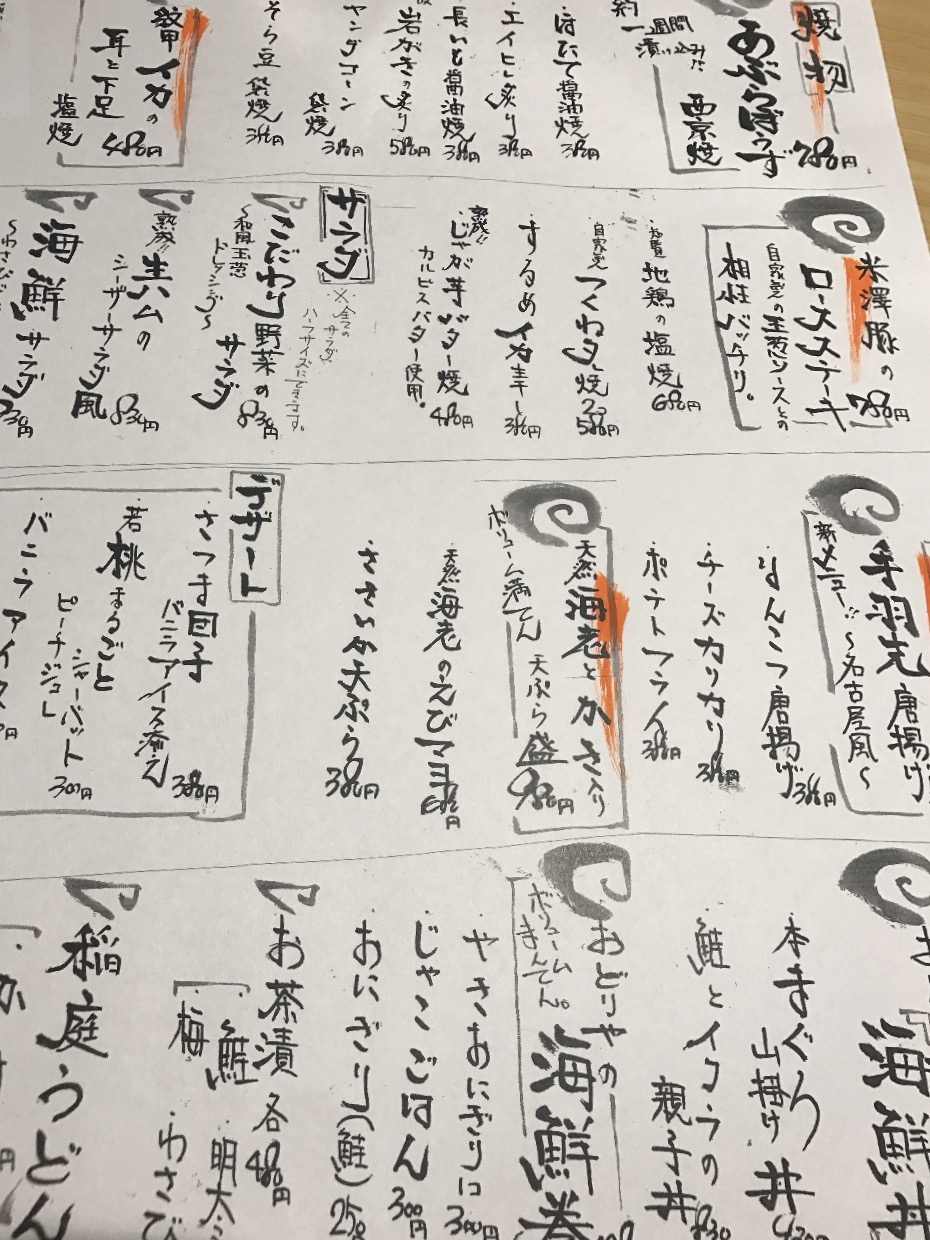 焼物
あぶらぼうず
西京焼
780円
約一週間
漬け込みだ
ほたて醤油焼
380円
エイヒレ炙り
380円
長いも醤油焼
380円
岩がきの炙り
580円
ヤングコーン
袋焼
380円
そら豆 袋焼
380円
イカの
耳と下足
塩焼
480円
米澤豚の
ロースステーキ
780円
自家製の玉葱ソースとの
相性バッチリ。
地鶏の塩焼
680円
自家製
つくね焼
580円
するめイカ
380円
熟成!!
じゃが芋バター焼
480円
カルピスバター使用。
サラダ
※全ての
サラダ
ハーフサイズにできます。
こだわり野菜の
サラダ
830円
〜和風玉葱
ドレッシング〜
生ハムの
シーザーサラダ風
830円
海鮮サラダ
〜わさび
手羽先唐揚げ
新メニュー!!
〜名古屋風〜
なんこつ唐揚げ
380円
チーズカリカリ
380円
ポテトフライ
380円
天然海老とかき入り
天ぷら盛
980円
ボリューム満てん
天然海老のえびマヨ
680円
ささみ天ぷら
380円
デザート
さつま団子
バニラアイス添え
380円
若桃まるごと
シャーバット
ピーチジュレ
300円
バニラアイス
海鮮丼
本まぐろ
山掛け丼
鮭とイクラの
親子丼
おどりやの
海鮮巻
ボリューム
まんてん。
やきおにぎり
300円
じゃこごはん
300円
おにぎり(鮭)
250
お茶漬 各480円
鮭
梅
明太
わさび
稲庭うどん